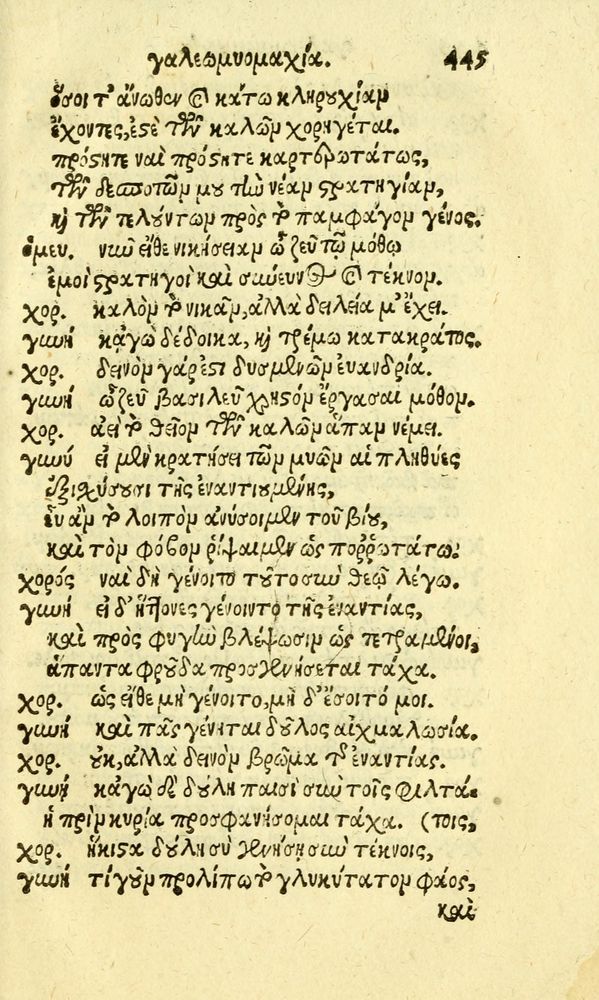 γαλεωμυομαχία. 445
ὅσοι τ' ἄνωθεν καὶ κάτω κληρουχίαν
ἔχοντες, ἐστὲ τῶν καλῶν χορηγέται.
πρόσιτε ναὶ πρόσιτε καρτερωτάτως,
τῶν δεσποτῶν μου τὼ νέαν στρατηγίαν,
καὶ τῶν πελόντων πρὸς τὸ παμφάγον γένος.
ὁμευ. νῦν εἴθε νικήσειαν ὦ ζεῦ τῷ μόθῳ
ἐμοὶ στρατηγοὶ καὶ σύνευνος καὶ τέκνον.
χορ. καλὸν τὸ νικᾶν, ἀλλὰ δειλεία μ' ἔχει.
γυνή κἀγὼ δέδοικα, καὶ τρέμω κατακράτος.
χορ. δεινὸν γάρ ἐστι δυσμενῶν εὐανδρία.
γυνή ὦ ζεῦ βασιλεῦ χρηστὸν ἔργασαι μόθον.
χορ. ἀεὶ τὸ θεῖον τῶν καλῶν ἅπαν νέμει.
γυνύ εἰ μὲν κρατήσει τῶν μυῶν αἱ πληθύες
ἐξισχύσουσι τῆς ἐναντιουμένης,
εὖ ἂν τὸ λοιπὸν ἀνύσοιμεν τοῦ βίου,
καὶ τὸν φόβον ῥίψαιμεν ὡς ποῤῥωτάτω.
χορός ναὶ δὴ γένοιτο τοῦτο σὺν θεῷ λέγω.
γυνή εἰ δ' ἥττονες γένοιντο τῆς ἐναντίας,
καὶ πρὸς φυγὴν βλέψωσιν ὡς πετραμένοι,
ἅπαντα φροῦδα προσγενήσεται τάχα.
χορ. ὡς εἴθε μὴ γένοιτο, μὴ δ' ἔσοιτό μοι.
γυνή καὶ πᾶς γένηται δοῦλος αἰχμαλωσία.
χορ. οὐκ, ἀλλὰ δεινὸν βρῶμα τῆς ἐναντίας.
γυνή κἀγὼ δὲ δούλη παισὶ σὺν τοῖς φιλτά-
ἡ πρὶν κυρία προσφανήσομαι τάχα. (τοις,
χορ. ἥκιστα δούλη σὺ γενήσῃ σὺν τέκνοις,
γυνή τί γοῦν προλίπω τὸ γλυκύτατον φάος,
καὶ